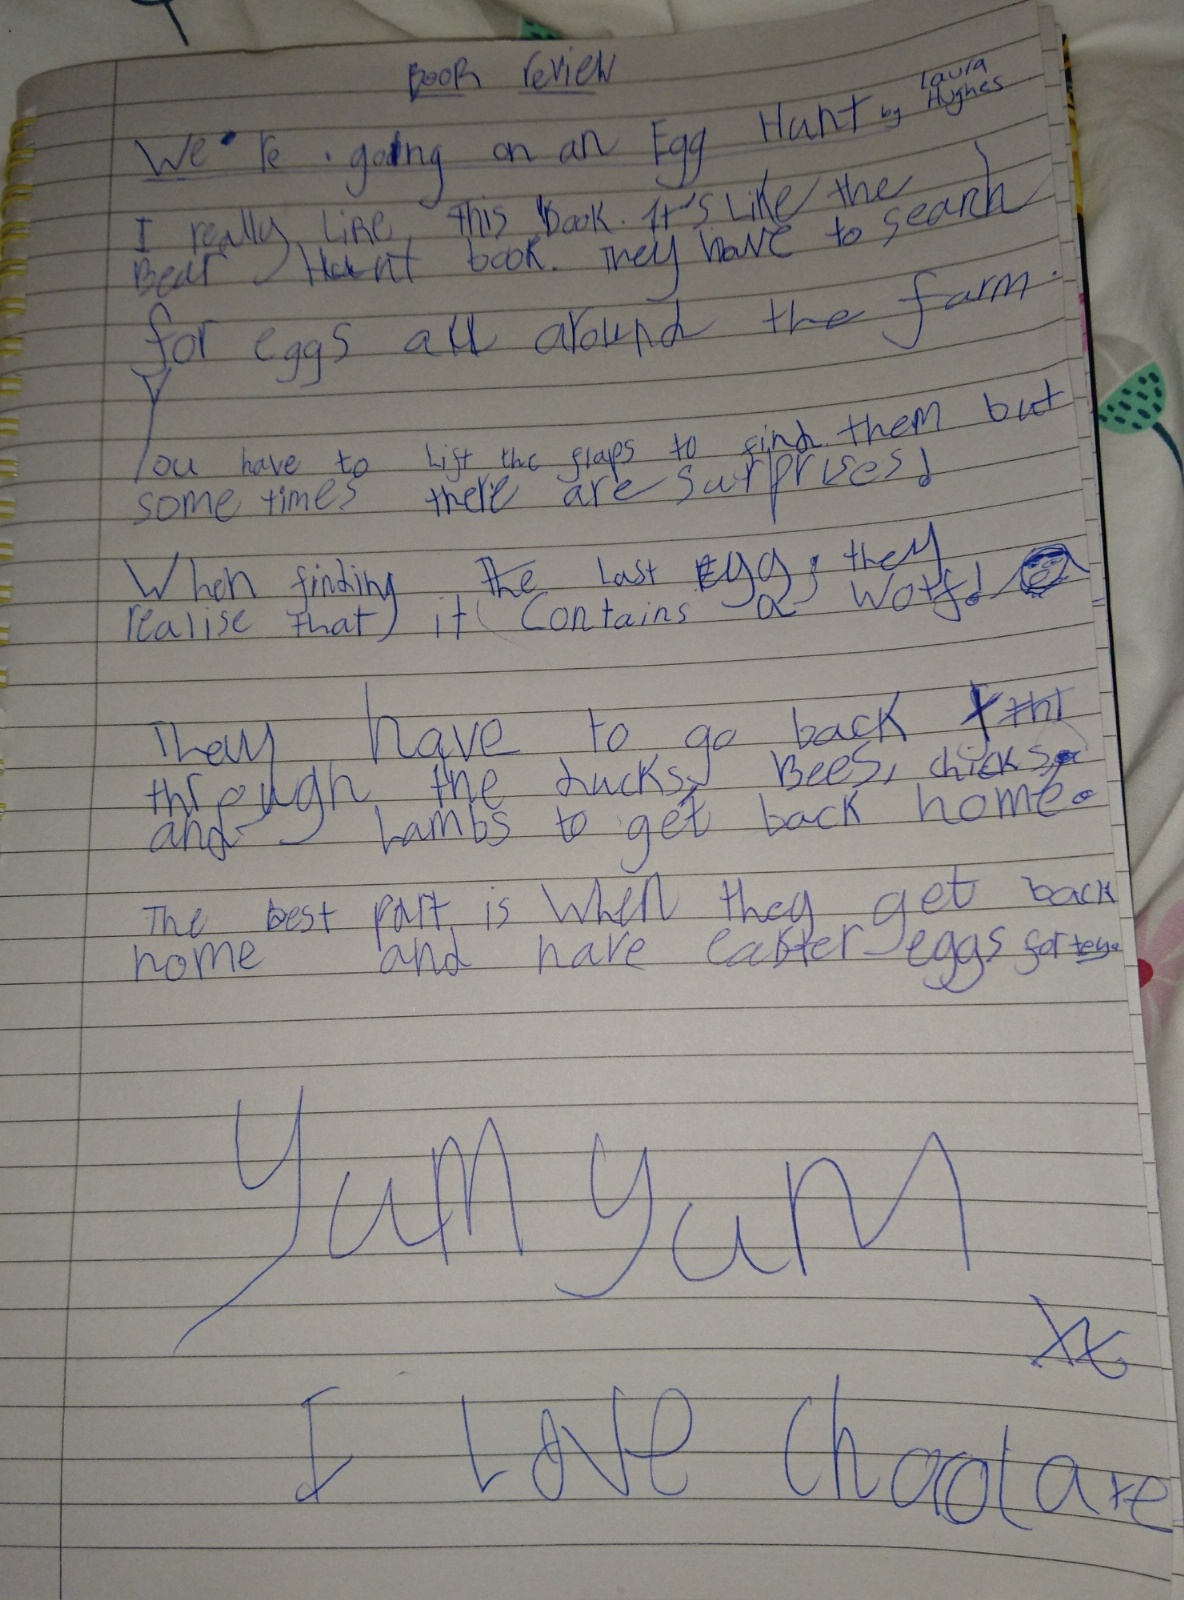 Book review
We're going on an Egg Hunt by Laura Hughes
I really Like This Book. It's Like the
Bear Hunt book. They have to search
for eggs all around the farm.
You have to Lift the flaps to find them but
some times there are surprises!
When finding the Last Egg, they
realise that it Contains a Wolf!
They have to go back
through the ducks, Bees, chicks,
and Lambs to get back home.
The best part is When they get back
home and have easter eggs for
Yum Yum
I Love Choclate